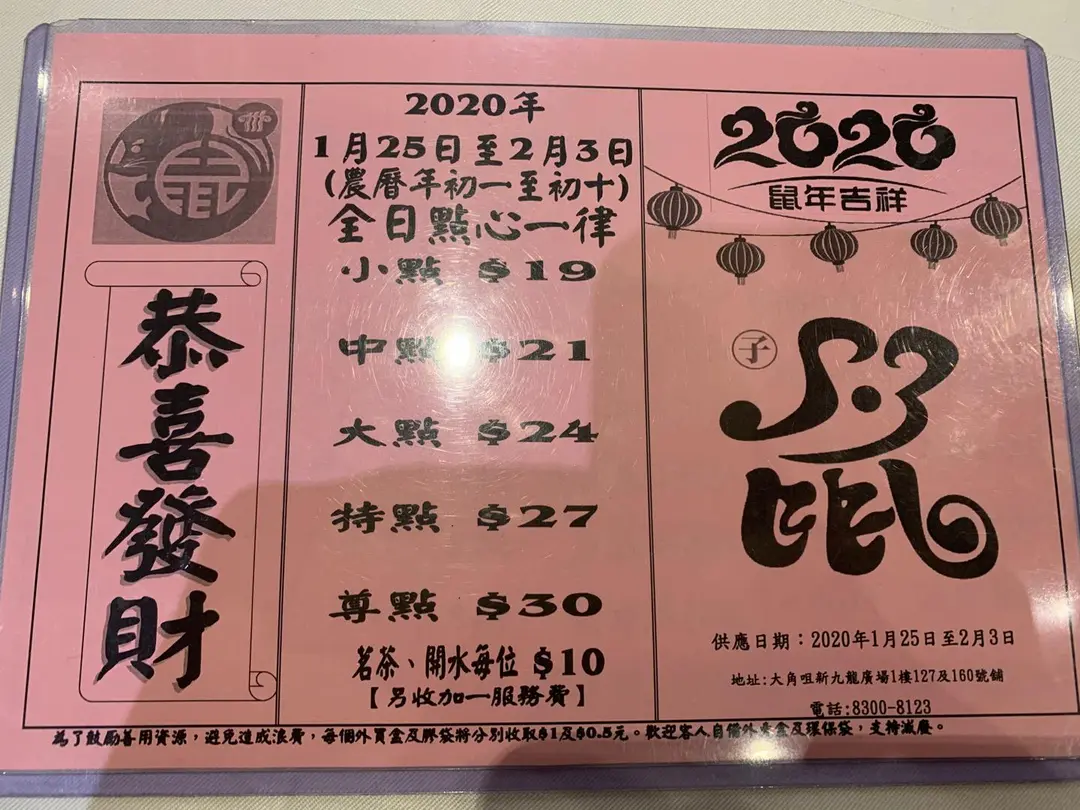 恭喜發財
2020年
1月25日至2月3日
(農曆年初一至初十)
全日點心一律
小點 $19
中點 $21
大點 $24
特點 $27
尊點 $30
茗茶、開水每位 $10
【另收加一服務費】
2020
鼠年吉祥
子
鼠
供應日期：2020年1月25日至2月3日
地址:大角咀新九龍廣場1樓127及160號舖
電話:8300-8123
為了鼓勵善用資源，避免造成浪費，每個外買盒及膠袋將分別收取$1及$0.5元。歡迎客人自備外賣盒及環保袋，支持減廢。